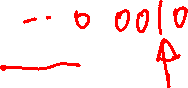 ... 0 0010